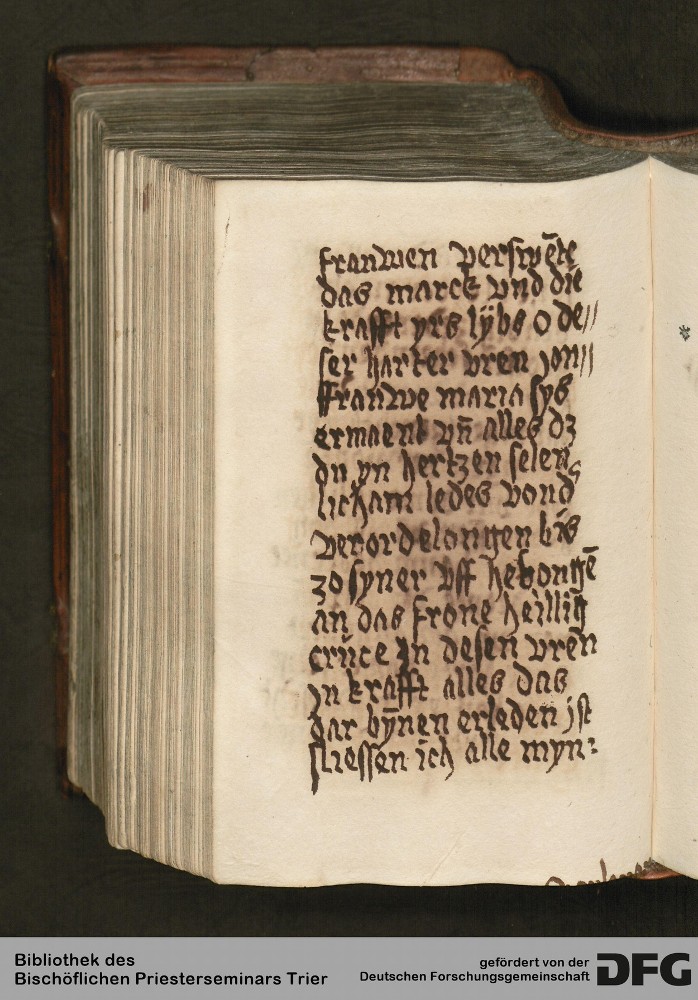 franwen verswēte
das marck vnd die
krafft yrs lÿbs o de//
ser harter vren jon//
ffrauwe maria sys
ermaent vn̄ alles dz
du yn hertzen selen
licham ledes vond
verordelongen bis
zo syner vff hebongē
an das frone heillig
crüce Jn desen vren
jn krafft alles das
dar bȳnen erleden jst
sliessen ich alle myn:
Bibliothek des
Bischöflichen Priesterseminars Trier
gefördert von der
Deutschen Forschungsgemeinschaft
DFG